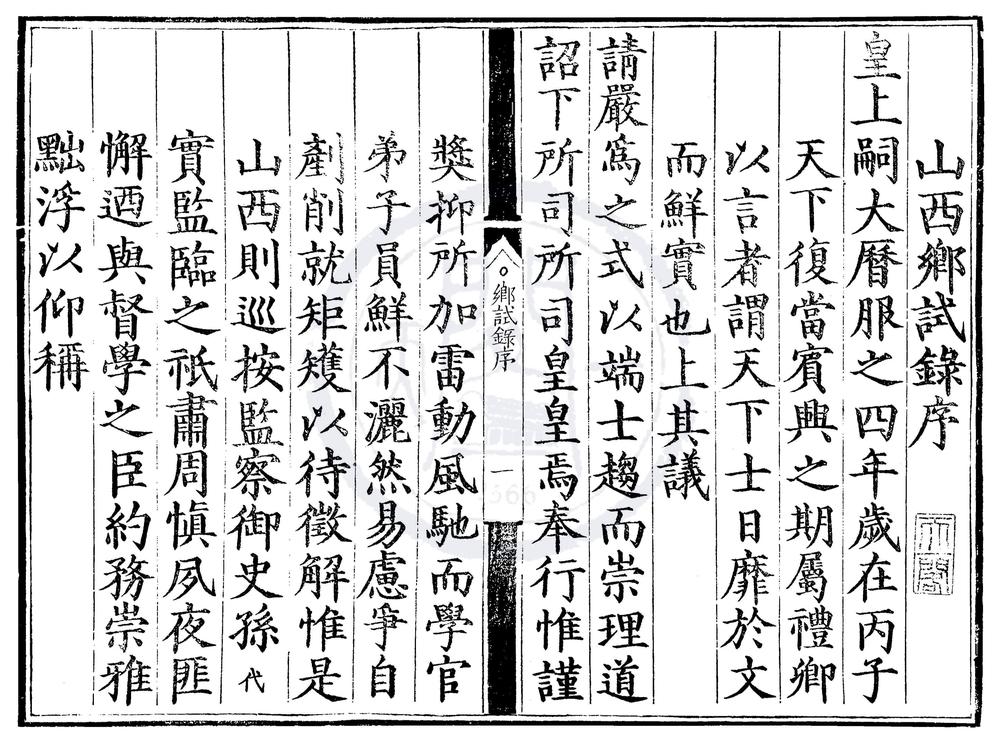 山西鄉試錄序
皇上嗣大曆服之四年歲在丙子
天下復當賓興之期屬禮卿
以言者謂天下士日靡於文
而鮮實也上其議
請嚴爲之式以端士趨而崇理道
詔下所司所司皇皇焉奉行惟謹
鄉試錄序
一
獎抑所加雷動風馳而學官
弟子員鮮不灑然易慮爭自
剷削就矩矱以待徵解惟是
山西則巡按監察御史孫代
實監臨之祇肅周慎夙夜匪
懈迺與督學之臣約務崇雅
黜浮以仰稱